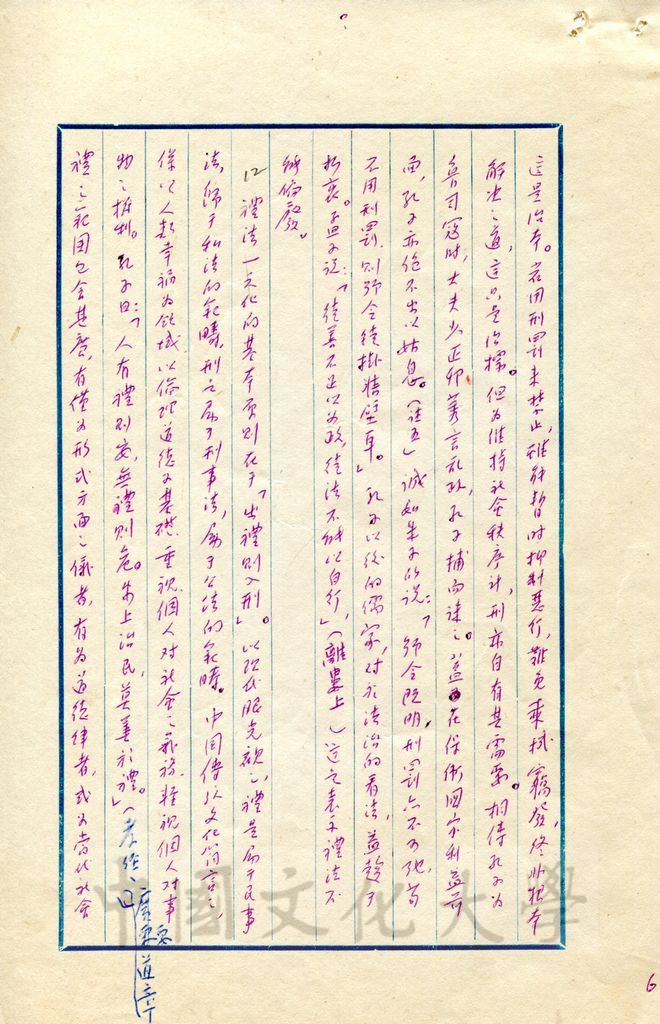 這是治本。若用刑罰來禁止，雖能暫時抑制惡行，難免乘機竊發，終非根本
解決之道，這只是治標。但為維持社會秩序計，刑亦自有其需要。相傳孔子為
魯司寇時，大夫少正卯莠言亂政，孔子捕而誅之。蓋在保衛國家利益前
面，孔子亦絕不出以姑息。（註五）誠如朱子所說：「號令既明，刑罰亦不可弛，苟
不用刑罰，則號令徒掛牆壁耳。」孔子以後的儒家，對於法治的看法，益趨于
折衷。孟子說：「徒善不足以為政，徒法不能以自行」，（離婁上）這已表示禮法不
能偏廢。
12 禮法一文化的基本原則在于「出禮則入刑」。以現代眼光視之，禮是屬于民事
法，歸于私法的範疇，刑是屬于刑事法，屬于公法的範疇。中國傳統文化簡言之，
係以人類幸福為領域，以倫理道德為基礎，重視個人對社會之義務，輕視個人對事
物之權利。孔子曰：「人有禮則安，無禮則危。安上治民，莫善於禮。」（孝經：廣要道章）
禮之範圍包含甚廣，有僅為形式方面之儀者，有為道德律者，或為當代社會
6
中國文化大學